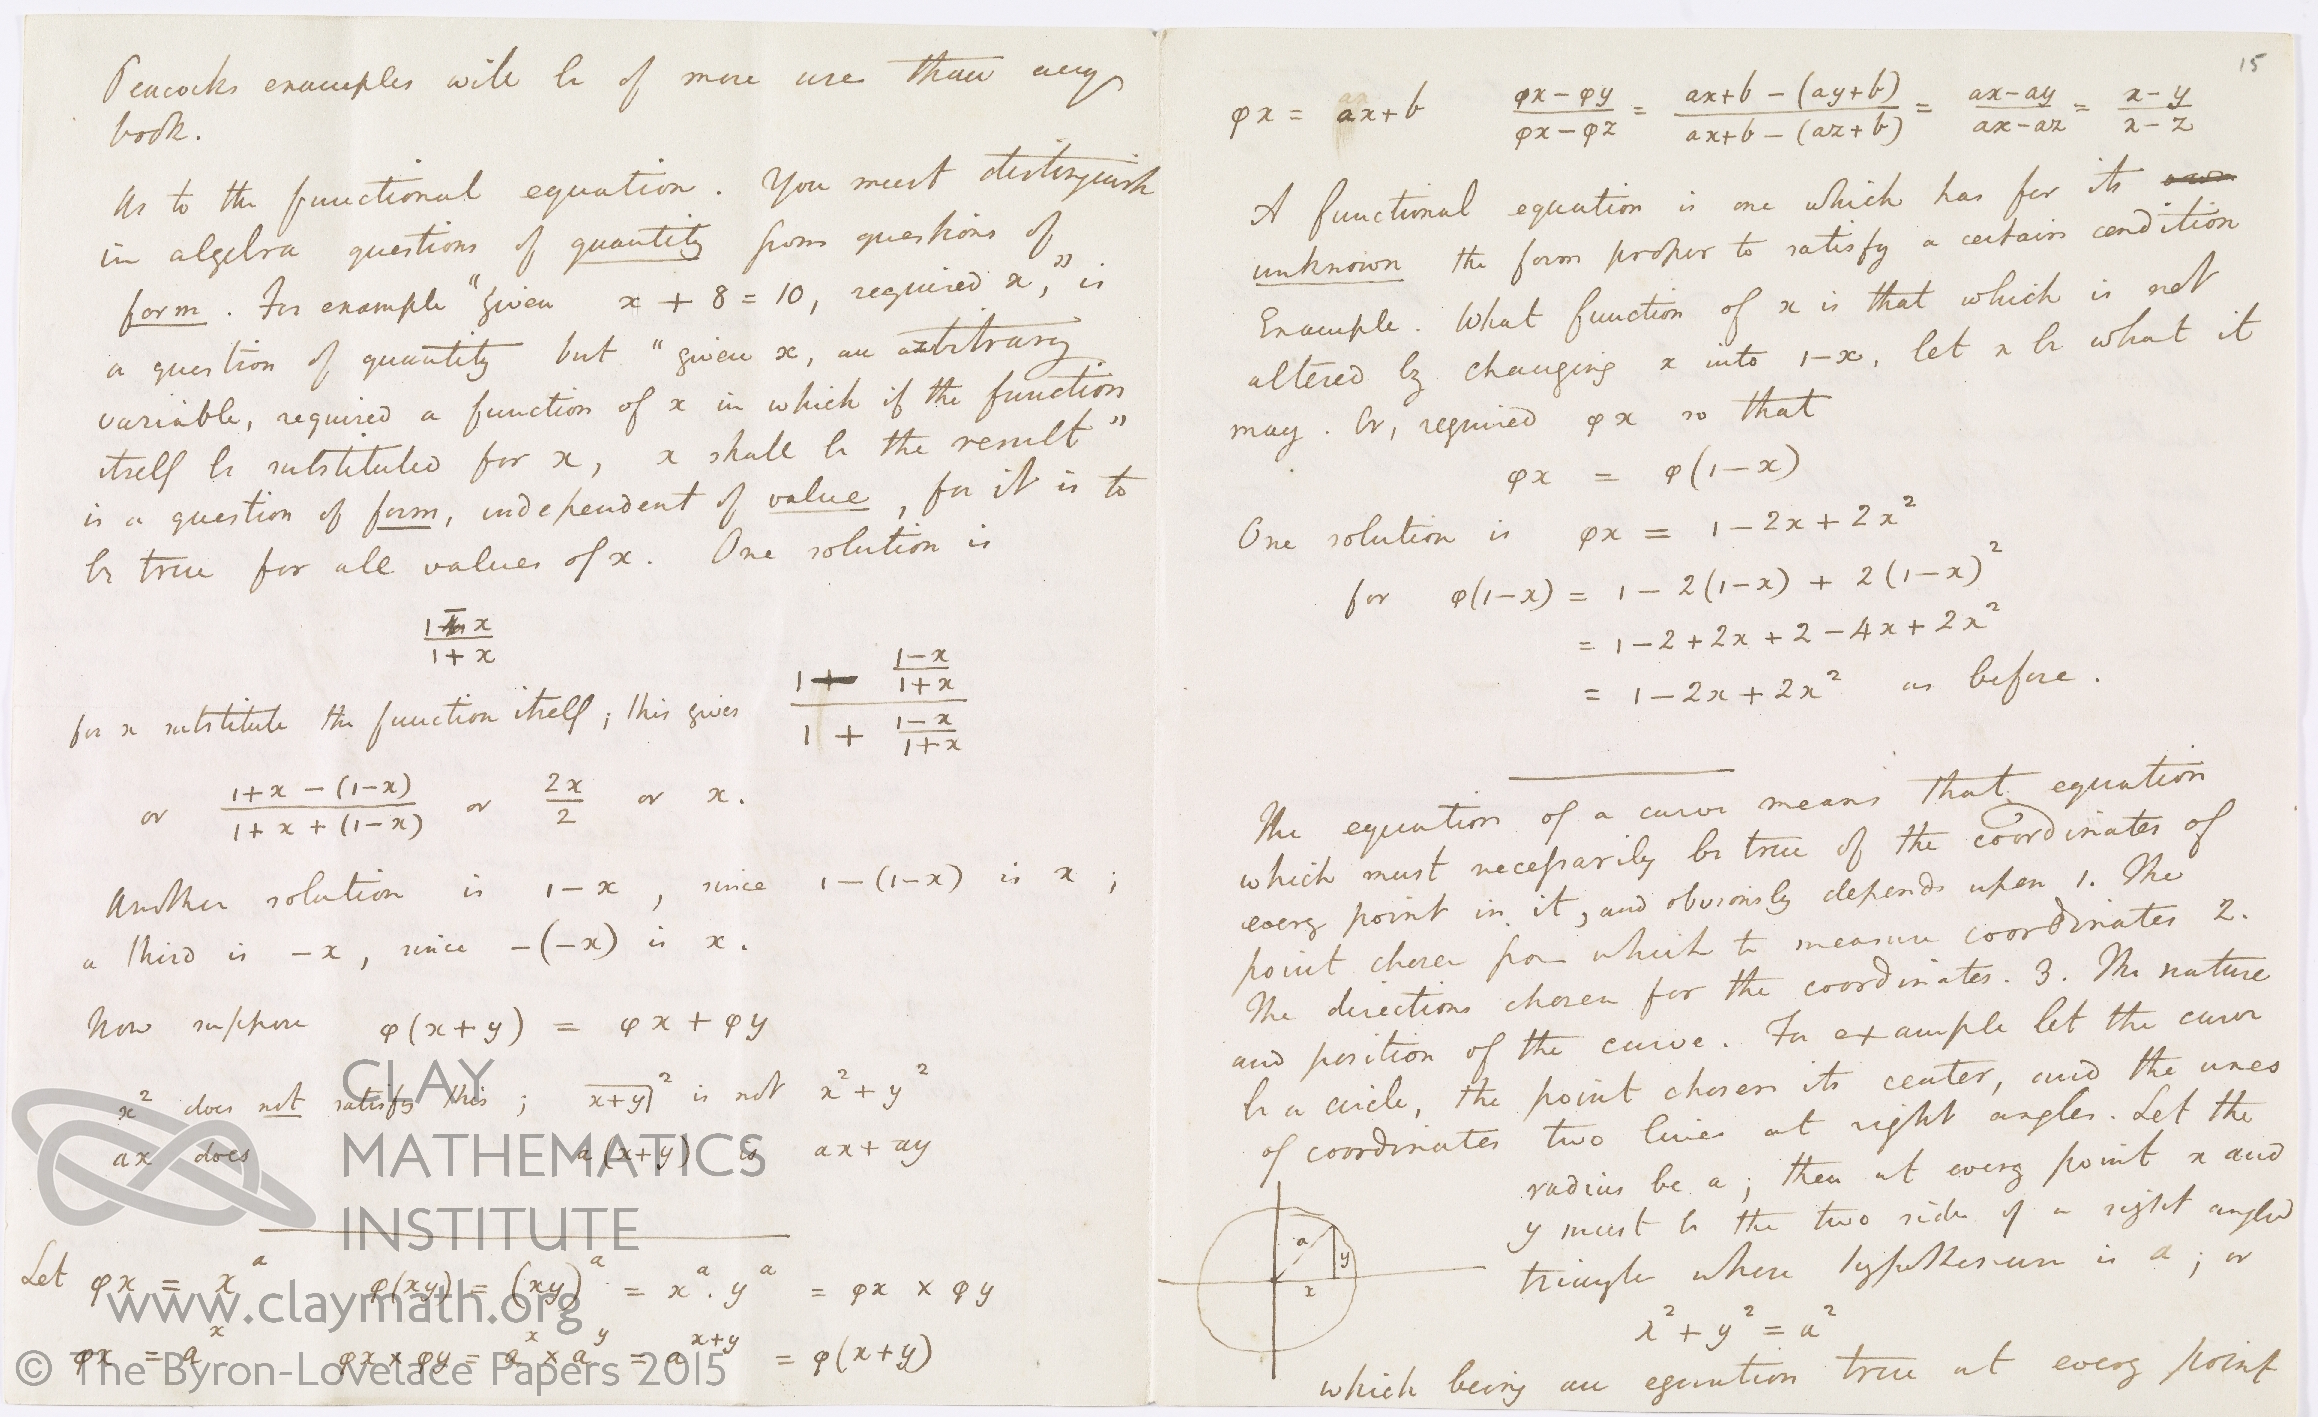 Peacocks examples will be of more use than any
book.
As to the functional equation. You must distinguish
in algebra questions of quantity from questions of
form. For example "given x + 8 = 10, required x," is
a question of quantity but "given x, an arbitrary
variable, required a function of x in which if the function
itself be substituted for x, x shall be the result"
is a question of form, independent of value, for it is to
be true for all values of x. One solution is
(1 - x)/(1 + x)
for x substitute the function itself; this gives (1 - (1-x)/(1+x))/(1 + (1-x)/(1+x))
or (1+x - (1-x))/(1+x + (1-x)) or 2x/2 or x.
Another solution is 1-x, since 1-(1-x) is x;
a third is -x, since -(-x) is x.
Now suppose φ(x+y) = φx + φy
x² does not satisfy this; (x+y)² is not x² + y²
ax does a(x+y) is ax + ay
Let φx = x^a φ(xy) = (xy)^a = x^a . y^a = φx × φy
φx = a^x φx × φy = a^x × a^y = a^(x+y) = φ(x+y)
CLAY
MATHEMATICS
INSTITUTE
www.claymath.org
© The Byron-Lovelace Papers 2015
15
φx = ax+b (φx-φy)/(φx-φz) = (ax+b - (ay+b))/(ax+b - (az+b)) = (ax-ay)/(ax-az) = (x-y)/(x-z)
A functional equation is one which has for its
unknown the form proper to satisfy a certain condition
Example. What function of x is that which is not
altered by changing x into 1-x, let x be what it
may. Or, required φx so that
φx = φ(1-x)
One solution is φx = 1-2x+2x²
for φ(1-x) = 1 - 2(1-x) + 2(1-x)²
= 1-2+2x+2-4x+2x²
= 1-2x+2x² as before.
The equation of a curve means that equation
which must necessarily be true of the coordinates of
every point in it, and obviously depends upon 1. The
point chosen from which to measure coordinates 2.
The directions chosen for the coordinates. 3. The nature
and position of the curve. For example let the curve
be a circle, the point chosen its center, and the lines
of coordinates two lines at right angles. Let the
radius be a; then at every point x and
y must be the two side of a right angled
triangle whose hypothenuse is a; or
x² + y² = a²
a
y
x
which being an equation true at every point